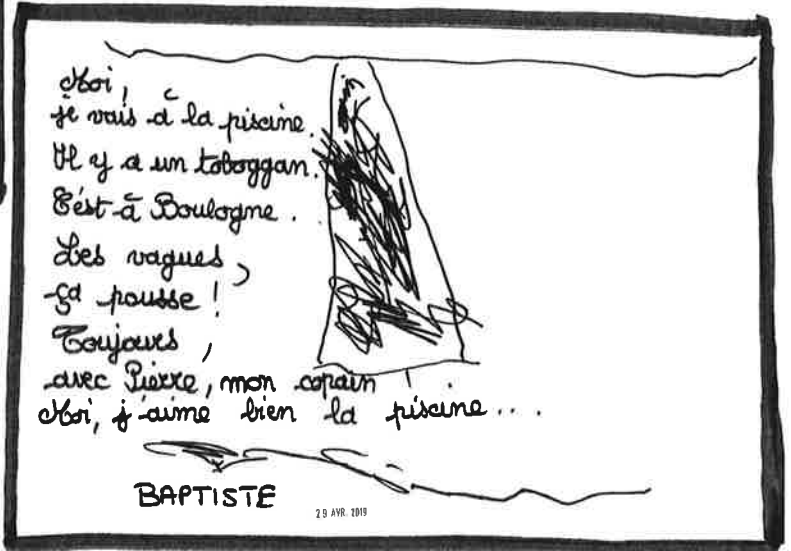 Moi,
je vais à la piscine.
Il y a un toboggan.
C'est à Boulogne.
Les vagues,
ça pousse !
Toujours,
avec Pierre, mon copain.
Moi, j'aime bien la piscine...
BAPTISTE
29 AVR. 2019